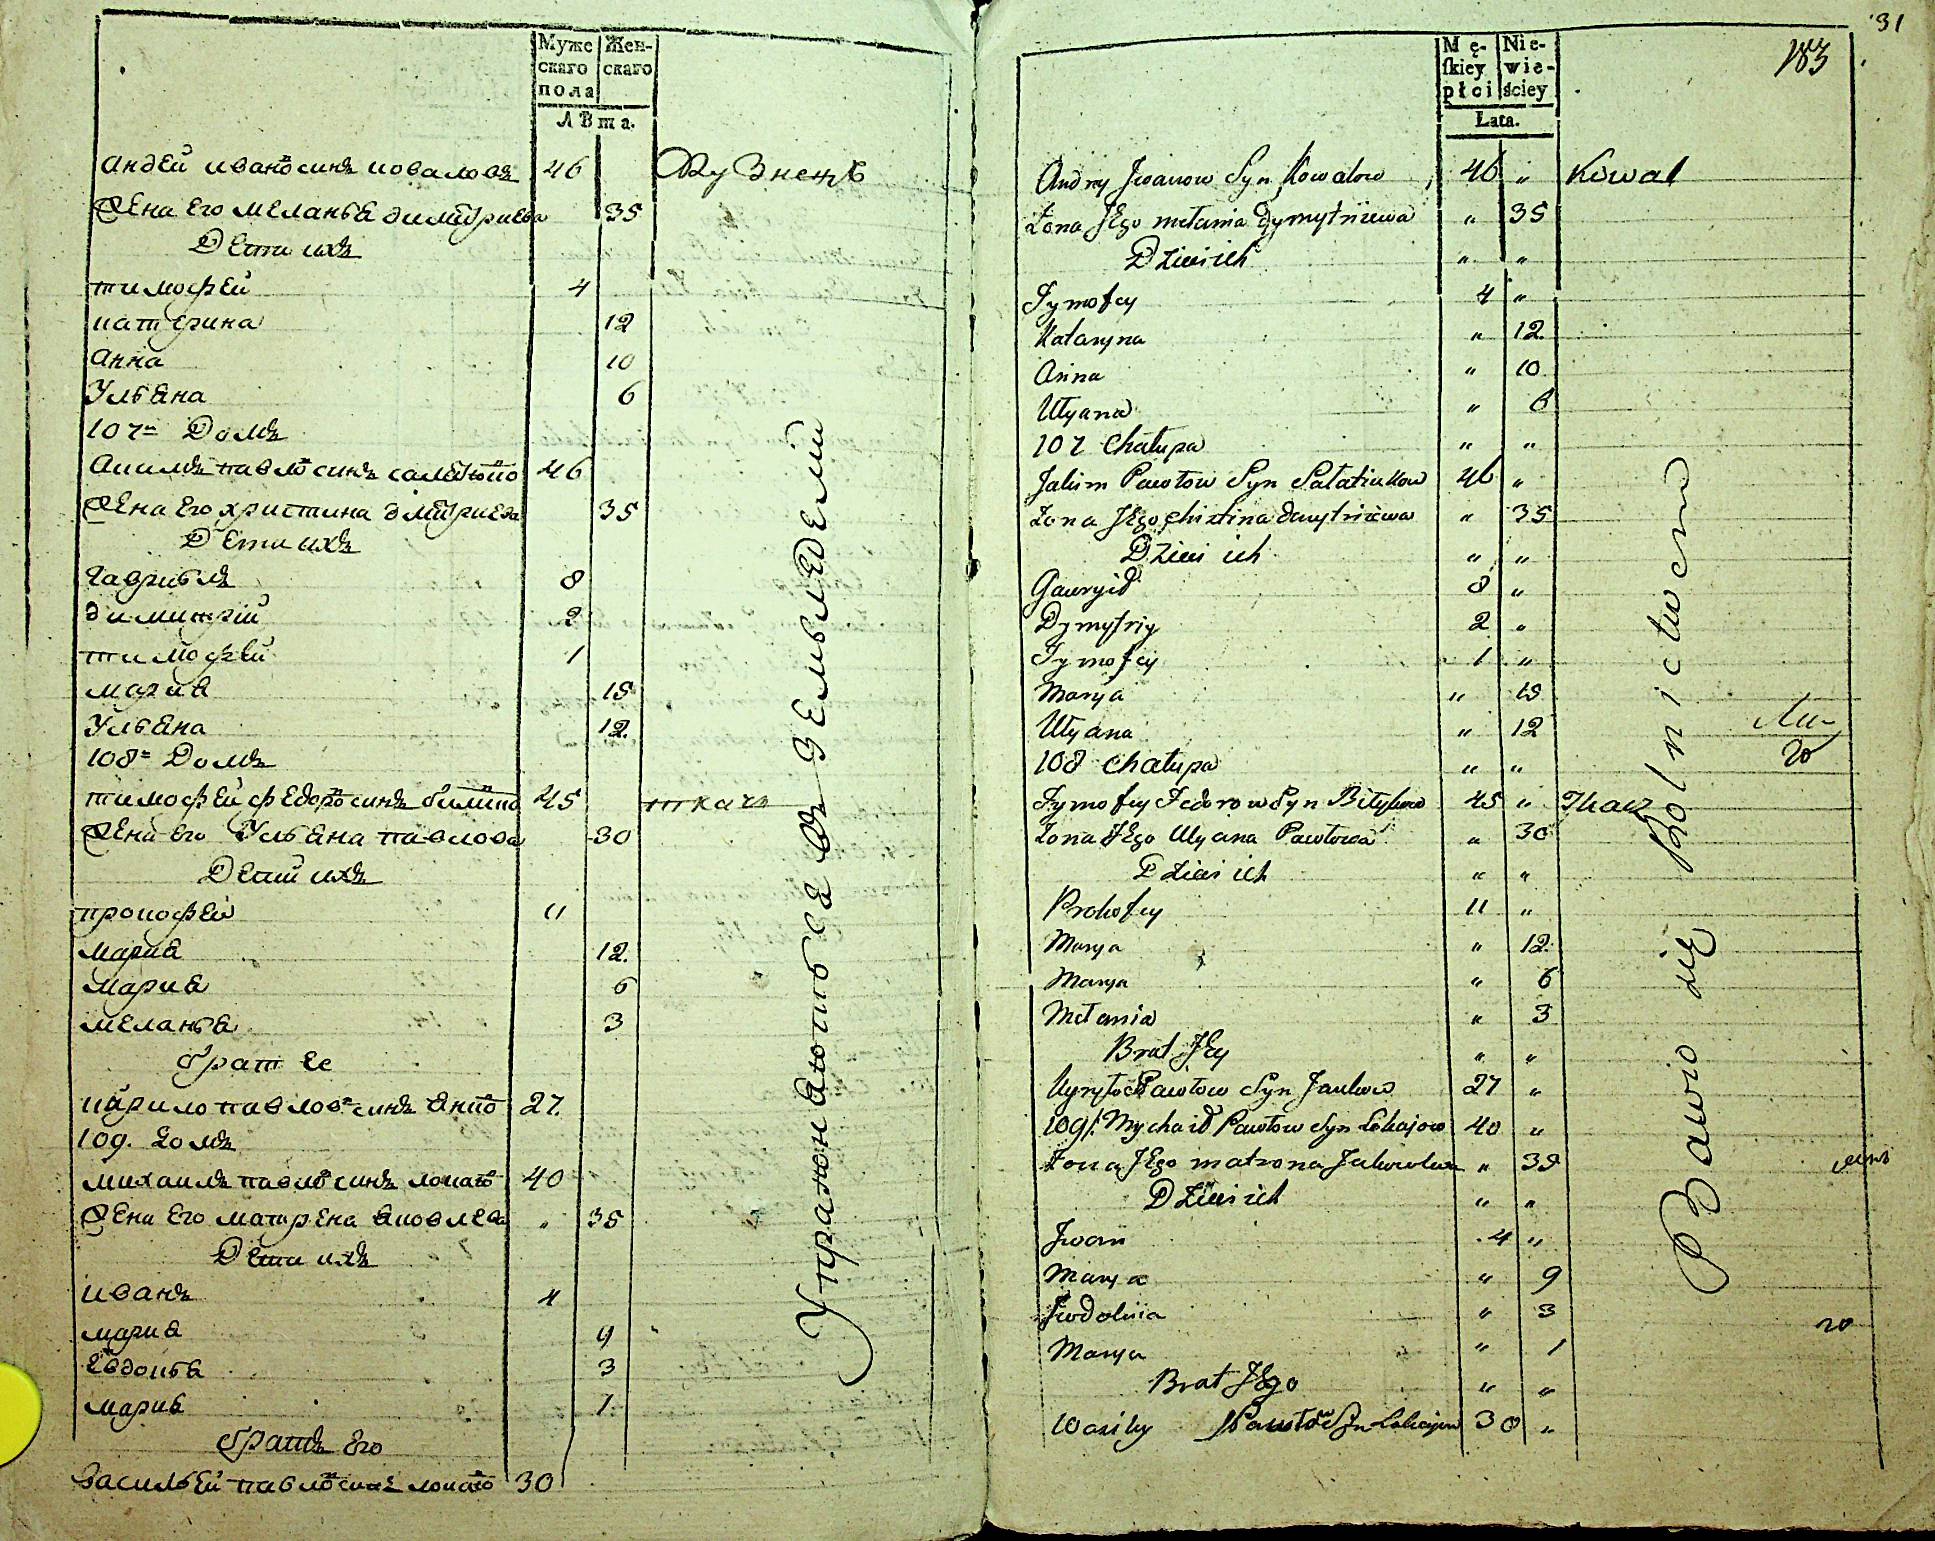 Муже Жен-
скаго скаго
пола
Лѣта.
андрей иванов синъ коваловъ 46 Кузнецъ
Жена Его меланья димитриева 35
Дети ихъ
тимофей 4
катерина 12
Анна 10
Ульяна 6
107й Домъ
Акимъ павлов синъ 46
Жена Его христина димитриева 35
Дети ихъ
гаврилъ 8
димитрій 2
тимофей 1
мария 15
Ульяна 12
108й Домъ
тимофей федоров синъ 45 ткачъ
Жена его Ульяна павлова 30
Дети ихъ
прокофей 11
мария 12
мария 6
меланья 3
брат Ее
кирило павлов синъ 27
109. Домъ
михаилъ павлов синъ 40
Жена Его матрена яковлева " 35
Дети ихъ
иванъ 4
мария 9
Евдокья 3
мария 1
братъ Его
василей павлов синъ 30
Упражняются въ Земледелии
31
183
Mę- Nie-
skiey wie-
płci ściey
Łata.
Andrey Jwanow Syn Kowalow 46 " Kowal
Żona JEgo mełania Dymytriiewa " 35
Dzieci ich " "
Tymofey 4 "
Kataryna " 12
Anna " 10
Ulyana " 6
107 Chałupa " "
Jakim Pawłow Syn 46 "
Żona JEgo Christina Dmytriiewa " 35
Dzieci ich " "
Gawryił 8 "
Dymytriy 2 "
Tymofey 1 "
Marya " 15
Ulyana " 12
108 Chałupa " "
Tymofey Fedorow Syn 45 " Tkacz
Żona JEgo Ulyana Pawłowa " 30
Dzieci ich " "
Prokofey 11 "
Marya " 12
Marya " 6
Mełania " 3
Brat JEy " "
Kyryło Pawłow Syn 27 "
109/. Mychaił Pawłow Syn 40 "
Żona JEgo matrona Jakowlewa " 35
Dzieci ich " "
Jwan 4 "
Marya " 9
Jwdokia " 3
Marya " 1
Brat JEgo " "
Wasiley Pawłow Syn 30 "
Bawio się Rolnictwem